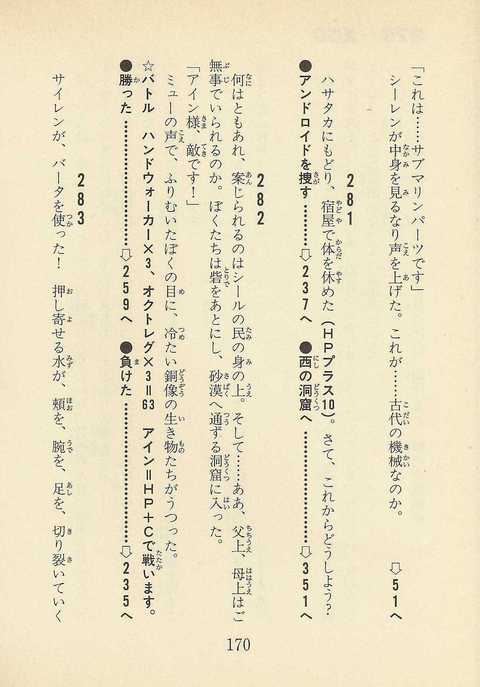 「これは……サブマリンパーツです」
シーレンが中身を見るなり声を上げた。これが……古代の機械なのか。
⇨51へ
281
ハサタカにもどり、宿屋で体を休めた(HPプラス10)。さて、これからどうしよう?
●アンドロイドを捜す……………⇨237へ ●西の洞窟へ……………⇨351へ
282
何はともあれ、案じられるのはシールの民の身の上。そして……ああ、父上、母上はご
無事でいられるのか。ぼくたちは砦をあとにし、砂漠へ通ずる洞窟に入った。
「アイン様、敵です!」
ミューの声で、ふりむいたぼくの目に、冷たい銅像の生き物たちがうつった。
☆バトル ハンドウォーカー×3、オクトレグ×3=63 アイン=HP+Cで戦います。
●勝った……………⇨259へ ●負けた……………⇨235へ
283
サイレンが、バータを使った! 押し寄せる水が、頬を、腕を、足を、切り裂いていく
170